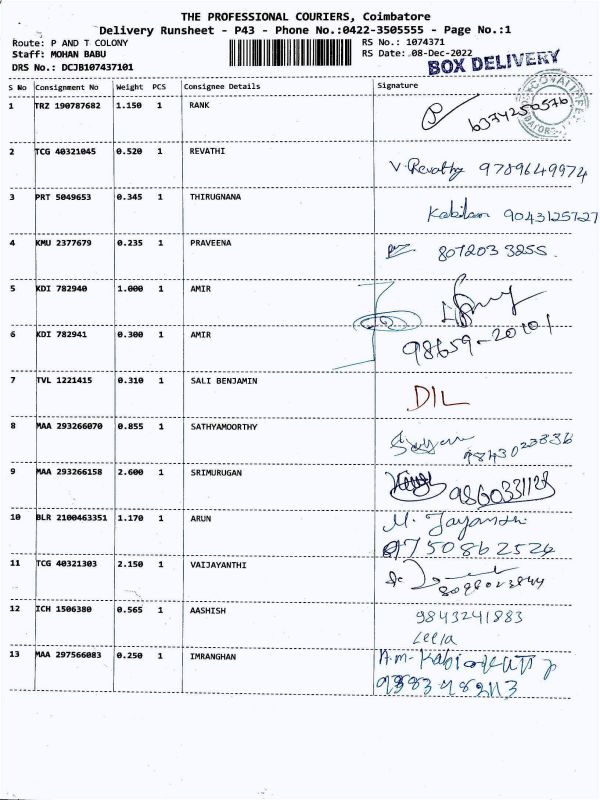 THE PROFESSIONAL COURIERS, Coimbatore
Delivery Runsheet - P43 - Phone No.:0422-3505555 - Page No.:1
Route: P AND T COLONY RS No.: 1074371
Staff: MOHAN BABU RS Date: 08-Dec-2022
DRS No.: DCJB107437101 BOX DELIVERY
S No Consignment No Weight PCS Consignee Details Signature
1 TRZ 190787682 1.150 1 RANK 6374250576
2 TCG 40321045 0.520 1 REVATHI
V. Revathy 9789649974
3 PRT 5049653 0.345 1 THIRUGNANA
Kabilan 9043125727
4 KMU 2377679 0.235 1 PRAVEENA
8072033255.
5 KDI 782940 1.000 1 AMIR
6 KDI 782941 0.300 1 AMIR
98659-20101
7 TVL 1221415 0.310 1 SALI BENJAMIN
DIL
8 MAA 293266070 0.855 1 SATHYAMOORTHY
9843023836
9 MAA 293266158 2.600 1 SRIMURUGAN
9860331123
10 BLR 2100463351 1.170 1 ARUN M. Jayanthi
9750862524
11 TCG 40321303 2.150 1 VAIJAYANTHI
12 ICH 1506380 0.565 1 AASHISH 9843241883
Leela
13 MAA 297566083 0.250 1 IMRANGHAN A.M.